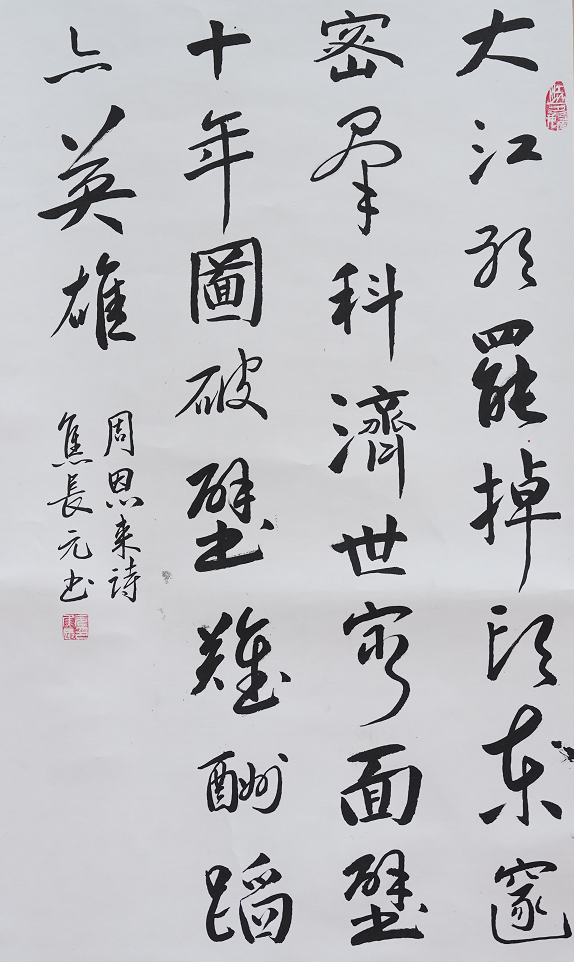 大江歌罷掉頭東邃
密羣科濟世窮面壁
十年圖破壁難酬蹈
亦英雄
周恩来詩
焦長元书